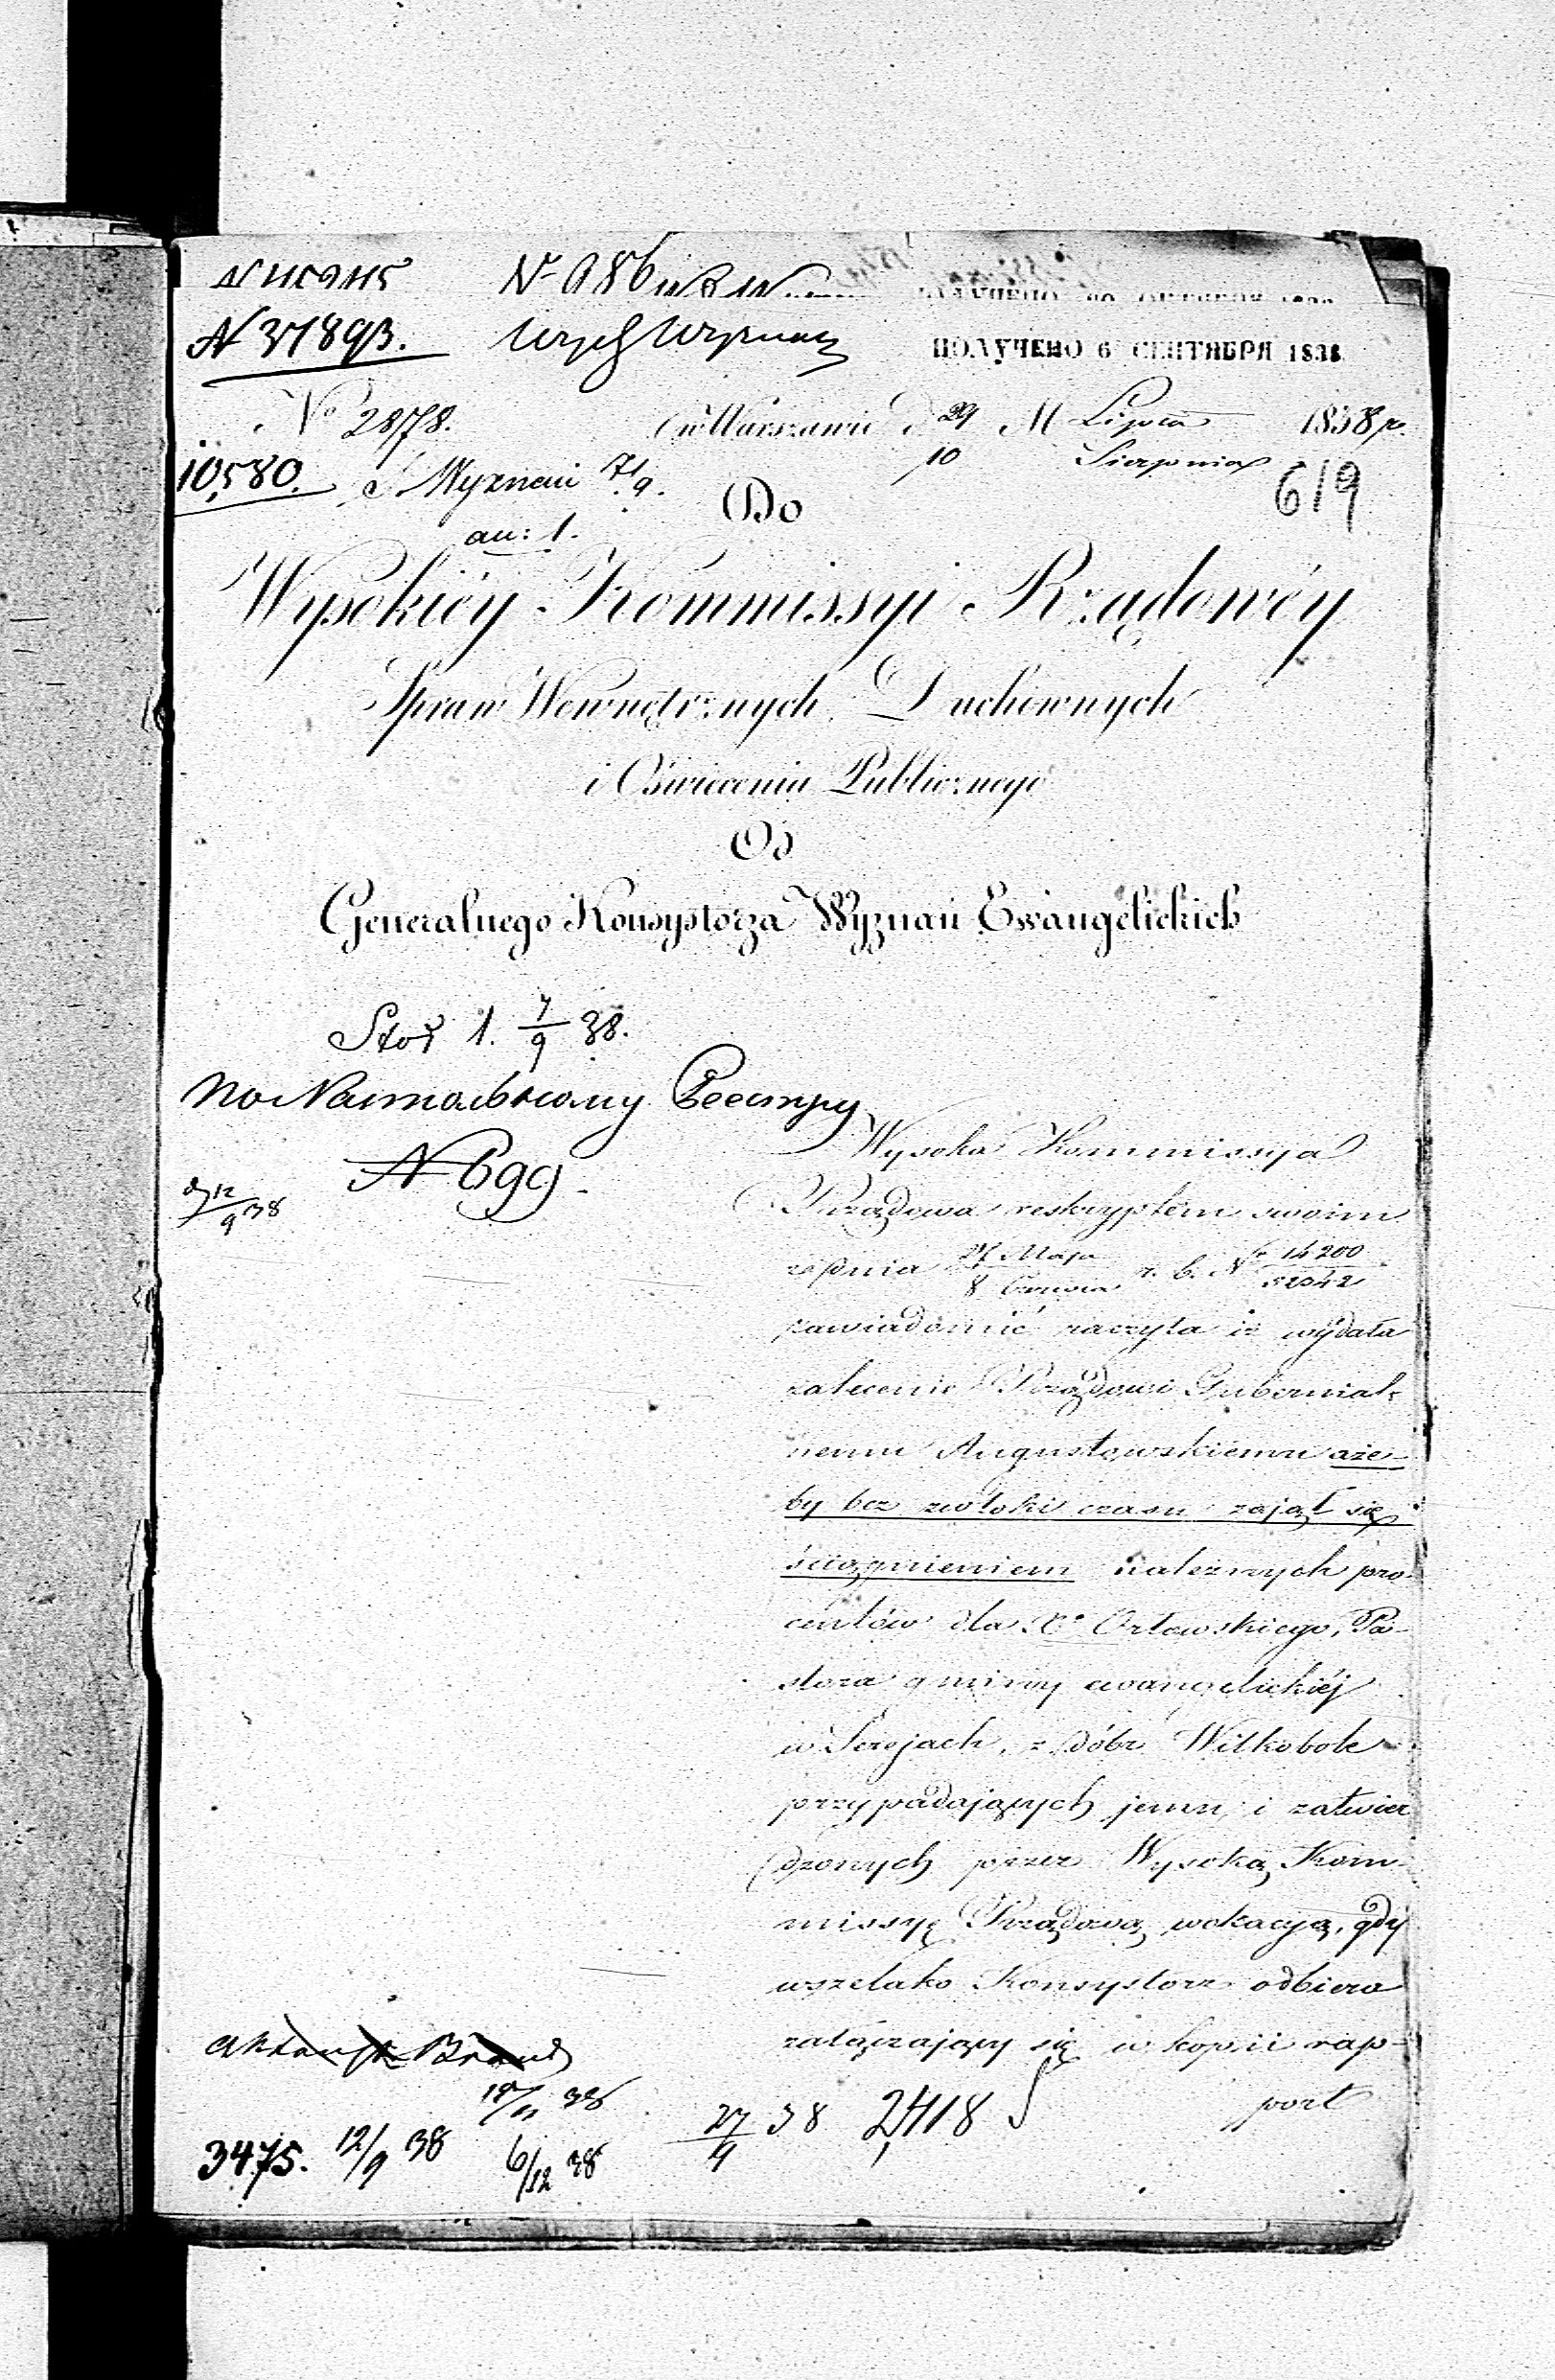 N 37893.
ПОЛУЧЕНО 6 СЕНТЯБРЯ 1838
No 2878. w Warszawie d 29 M Lipca 1838 r.
10 Sierpnia
10,580. S. Wyznań 7/9.
619
an: 1.
Do
Wysokiéy Kommissyi Rządowéy
Spraw Wewnętrznych, Duchownych
i Oświecenia Publicznego
Od
Generalnego Konsystorza Wyznań Ewangelickich
Stoł 1. 7/9 38.
по Реестру
N 699.
d 12/9 38
Wysoka Kommissya
Rządowa reskryptem swoim
z dnia 27 Maja / 8 Czerwca r. b. No 14200 /
zawiadomić raczyła iż wydała
zalecenie Rządowi Gubernial-
nemu Augustowskiemu aże-
by bez zwłoki czasu zajął się
ściągnieniem należnych pro-
centów dla Xa Orłowskiego, Pa-
stora gminy ewangelickiéj
w Serejach, z dóbr Wilkobole
przypadających jemu, i zatwier
dzonych przez Wysoką Kom-
missyę Rządową wokacyą, gdy
wszelako Konsystorz odbiera
załączający się w kopii rap-
port
3475. 12/9 38 6/12 38 27/9 38 2,418